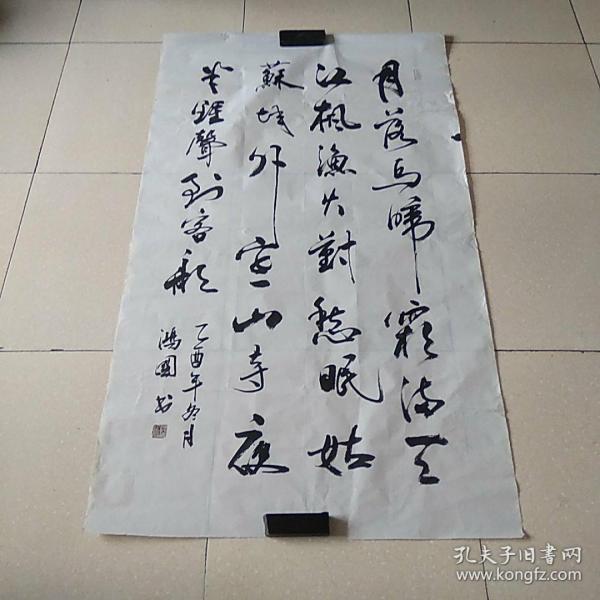 月落烏啼霜满天
江楓漁火對愁眠姑
蘇城外寒山寺夜
半鍾聲到客船
乙酉年冬月
鴻國书
孔夫子旧书网
www.kongfz.com